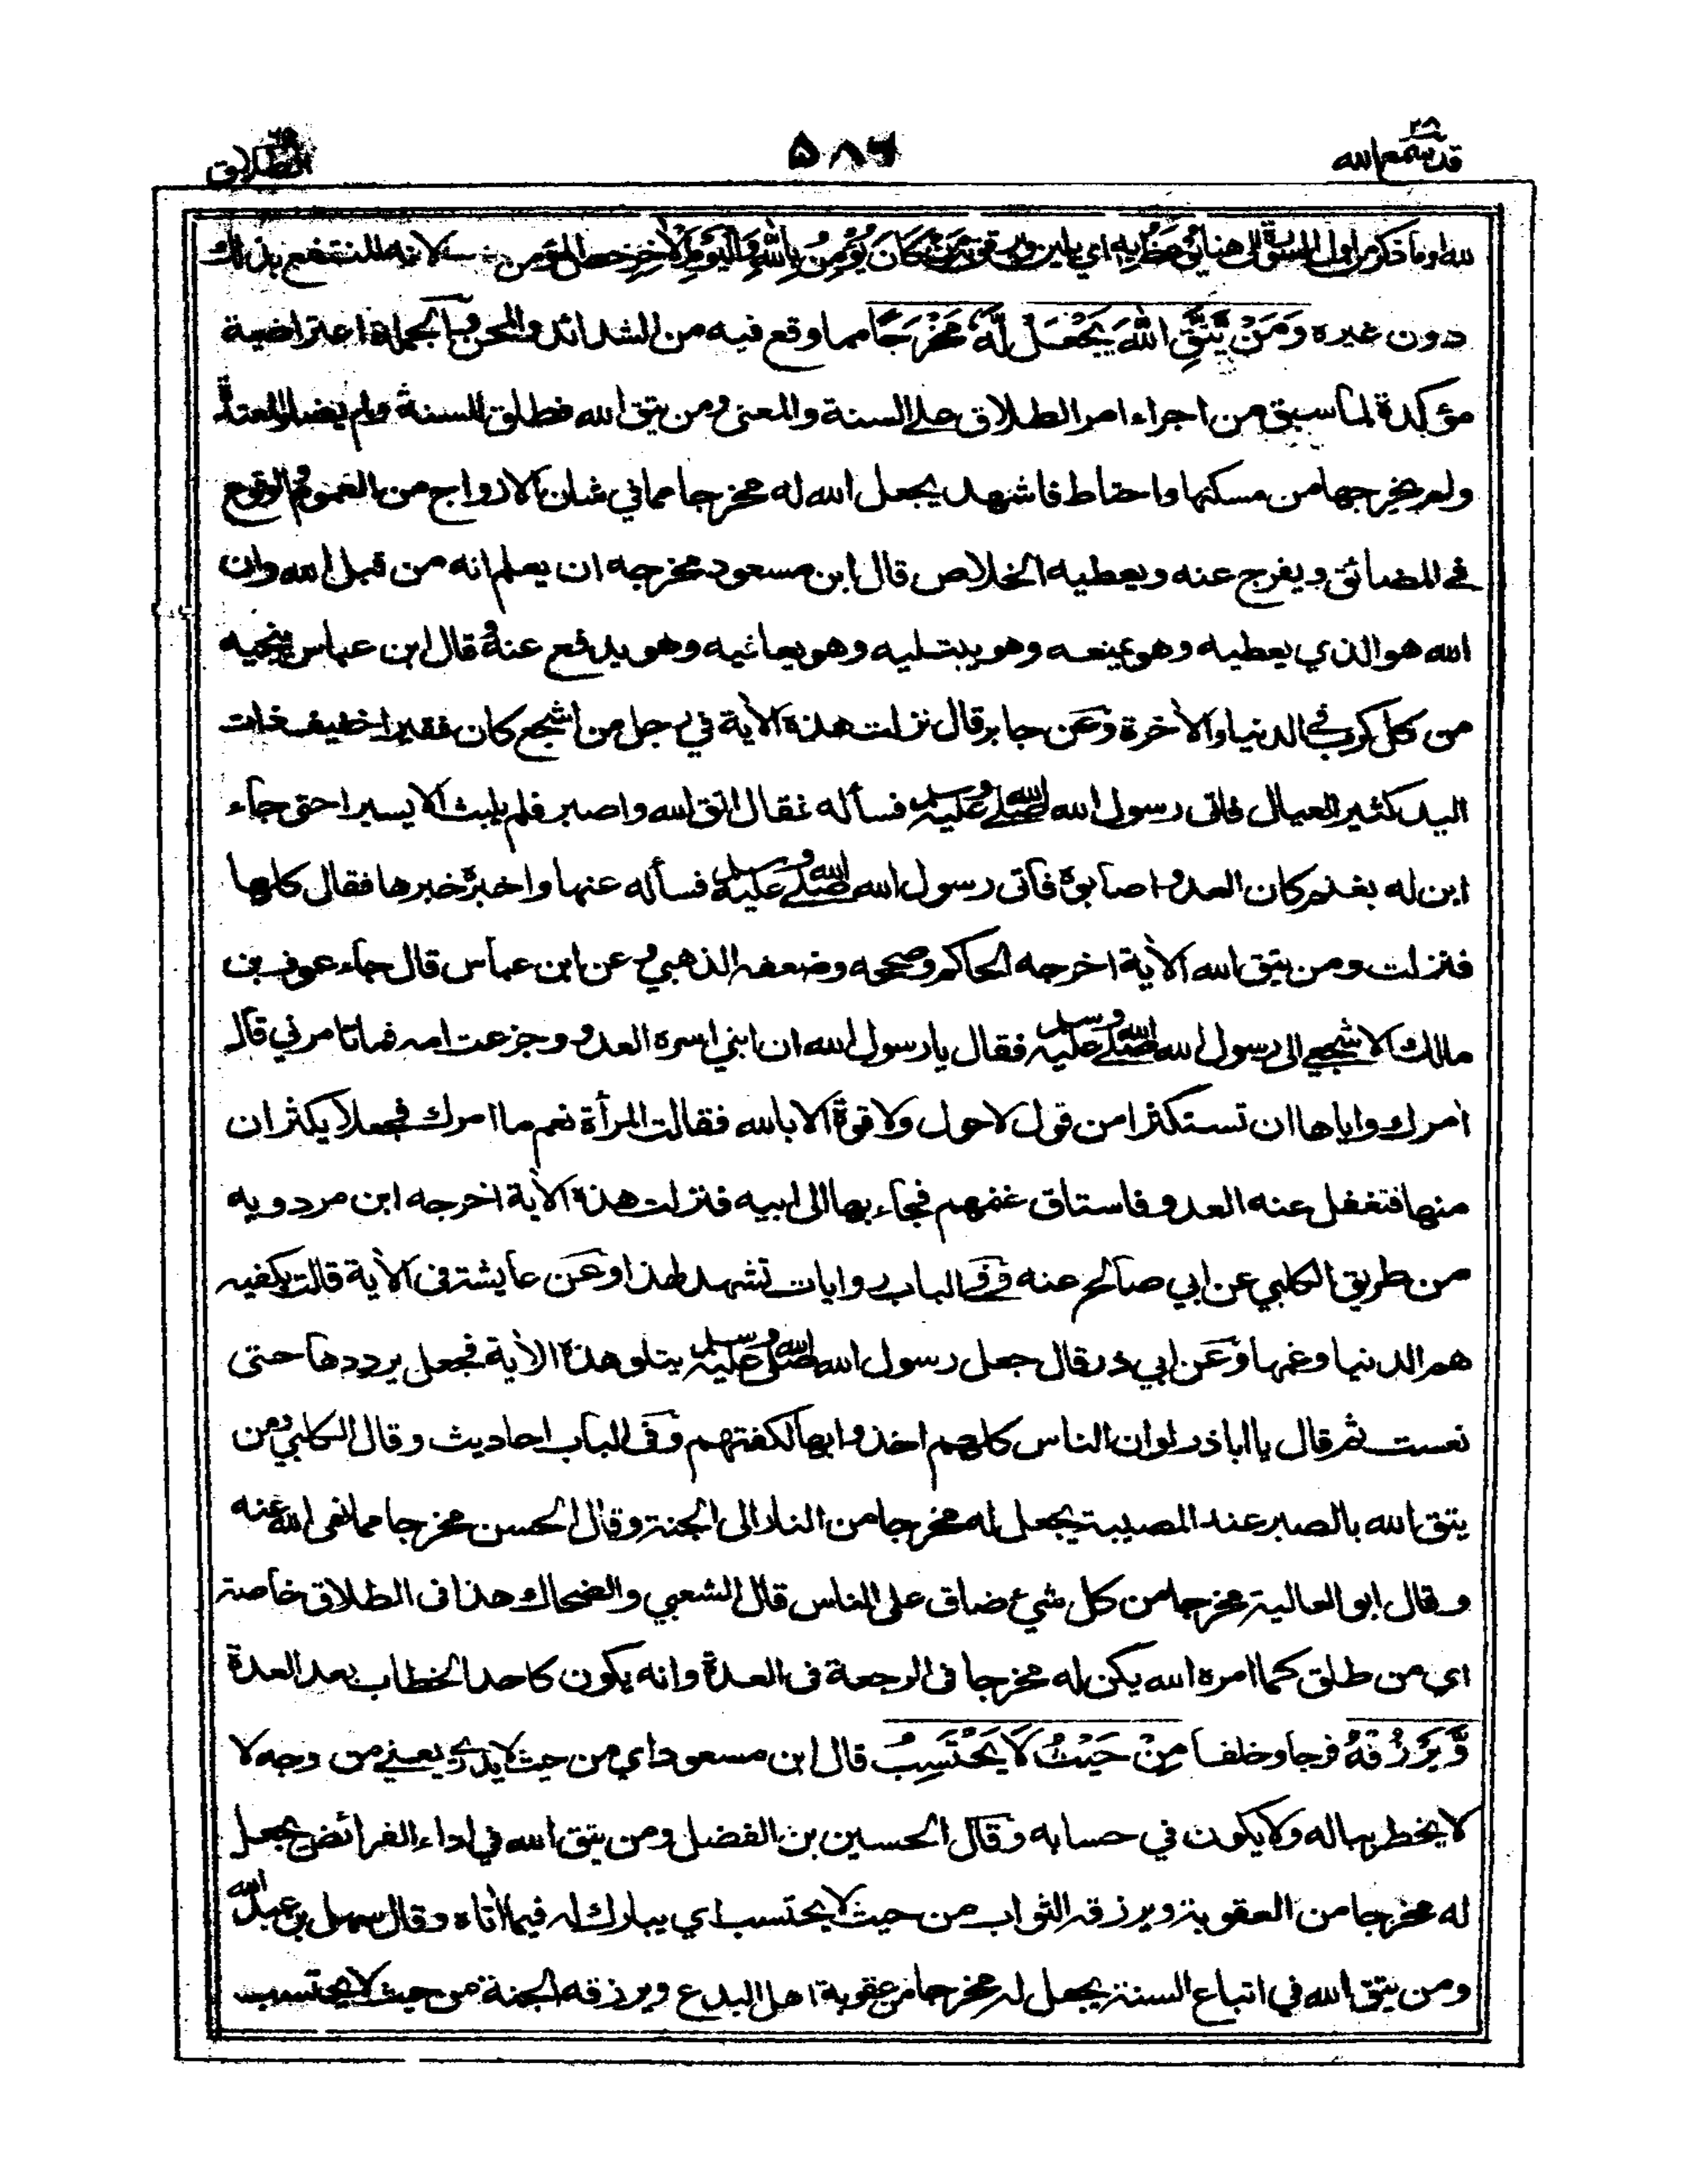 قد سمع الله ٢٨
٥٨٦
الطلاق
لله وما ذكر من اول السورة الى هنا يُوْعَظُ بِهٖ اي يلين ويرق مَنْ كَانَ يُؤْمِنُ بِاللّٰهِ وَالْيَوْمِ الْاٰخِرِ خص المؤمن لانه المنتفع بذلك
دون غيره وَمَنْ يَّتَّقِ اللّٰهَ يَجْعَلْ لَّهٗ مَخْرَجًا مما وقع فيه من الشدائد والمحن والجملة اعتراضية
مؤكدة لما سبق من اجراء امر الطلاق على السنة والمعنى ومن يتق الله فطلق للسنة ولم يضار المعتدة
ولم يخرجها من مسكنها واحتاط فاشهد يجعل الله له مخرجا مما في شان الازواج من الغموم والوقوع
في المضائق ويفرج عنه ويعطيه الخلاص قال ابن مسعود مخرجه ان يعلم انه من قبل الله وان
الله هو الذي يعطيه وهو يمنعه وهو يبتليه وهو يعافيه وهو يدفع عنه وقال ابن عباس ينجيه
من كل كرب في الدنيا والآخرة وعن جابر قال نزلت هذه الآية في رجل من اشجع كان فقيرا خفيف ذات
اليد كثير العيال فاتى رسول الله صلى الله عليه وسلم فسأله فقال اتق الله واصبر فلم يلبث الا يسيرا حتى جاء
ابن له بغنم كان العدو اصابوه فأتى رسول الله صلى الله عليه وسلم فسأله عنها واخبره خبرها فقال كلها
فنزلت ومن يتق الله الآية اخرجه الحاكم وصححه وضعفه الذهبي وعن ابن عباس قال جاء عوف بن
مالك الاشجعي الى رسول الله صلى الله عليه وسلم فقال يا رسول الله ان ابني اسره العدو وجزعت امه فما تامرني قال
أمرك واياها ان تستكثرا من قول لا حول ولا قوة الا بالله فقالت المرأة نعم ما امرك فجعلا يكثران
منها فتغفل عنه العدو فاستاق غنمهم فجاء بها الى ابيه فنزلت هذه الآية اخرجه ابن مردويه
من طريق الكلبي عن ابي صالح عنه وفي الباب روايات تشهد لهذا وعن عايشة في الآية قالت يكفيه
هم الدنيا وغمها وعن ابي ذر قال جعل رسول الله صلى الله عليه وسلم يتلو هذه الآية فجعل يرددها حتى
نعست ثم قال يا اباذر لو ان الناس كلهم اخذوا بها لكفتهم وفي الباب احاديث وقال الكلبي ومن
يتق الله بالصبر عند المصيبة يجعل له مخرجا من النار الى الجنة وقال الحسن مخرجا مما نهى الله عنه
وقال ابو العالية مخرجا من كل شيء ضاق على الناس قال الشعبي والضحاك هذا في الطلاق خاصة
اي من طلق كما امره الله يكن له مخرجا في الرجعة في العدة وانه يكون كاحد الخطاب بعد العدة
وَّيَرْزُقْهُ فرجا وخلفا مِنْ حَيْثُ لَا يَحْتَسِبُ قال ابن مسعود اي من حيث لا يدري يعني من وجه لا
لا يخطر بباله ولا يكون في حسابه وقال الحسين بن الفضل ومن يتق الله في اداء الفرائض يجعل
له مخرجا من العقوبة ويرزقه الثواب من حيث لا يحتسب اي يبارك له فيما أتاه وقال سهل بن عبد الله
ومن يتق الله في اتباع السنة يجعل له مخرجا من عقوبة اهل البدع ويرزقه الجنة من حيث لا يحتسب